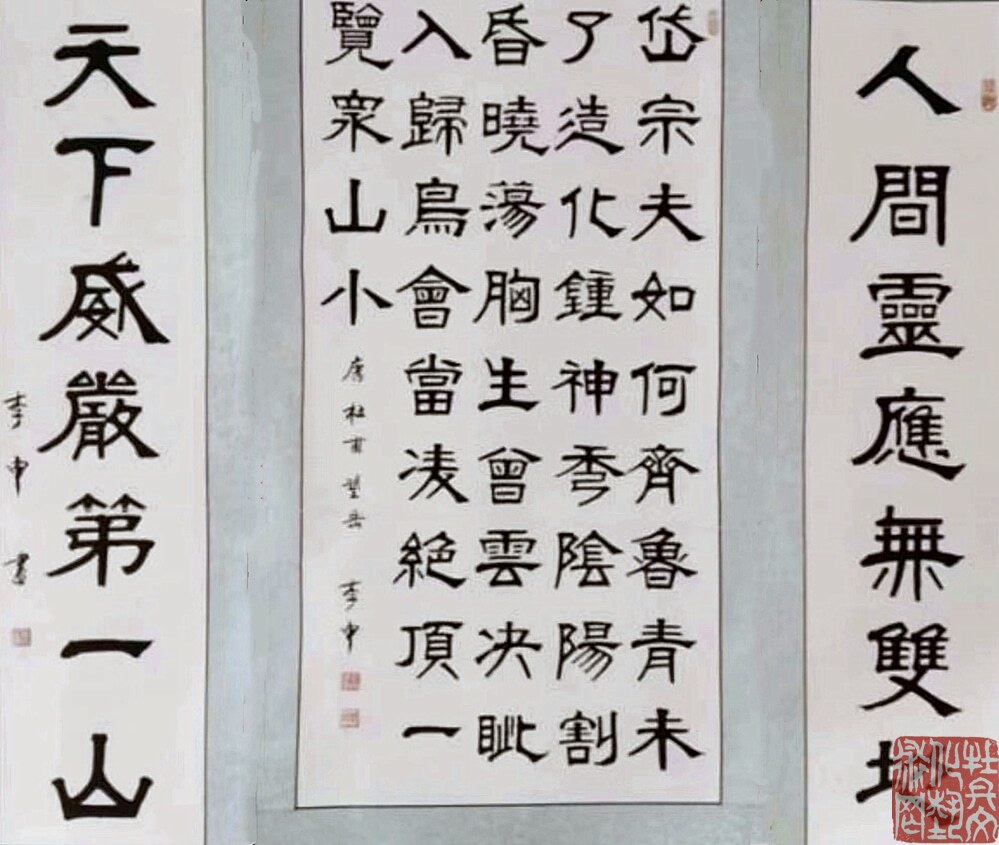 人間靈應無雙
岱宗夫如何齊魯青未
了造化鍾神秀陰陽割
昏曉蕩胸生曾雲决眦
入歸鳥會當凌絕頂一
覽衆山小
唐杜甫望岳 李申
天下威嚴第一山
李申書